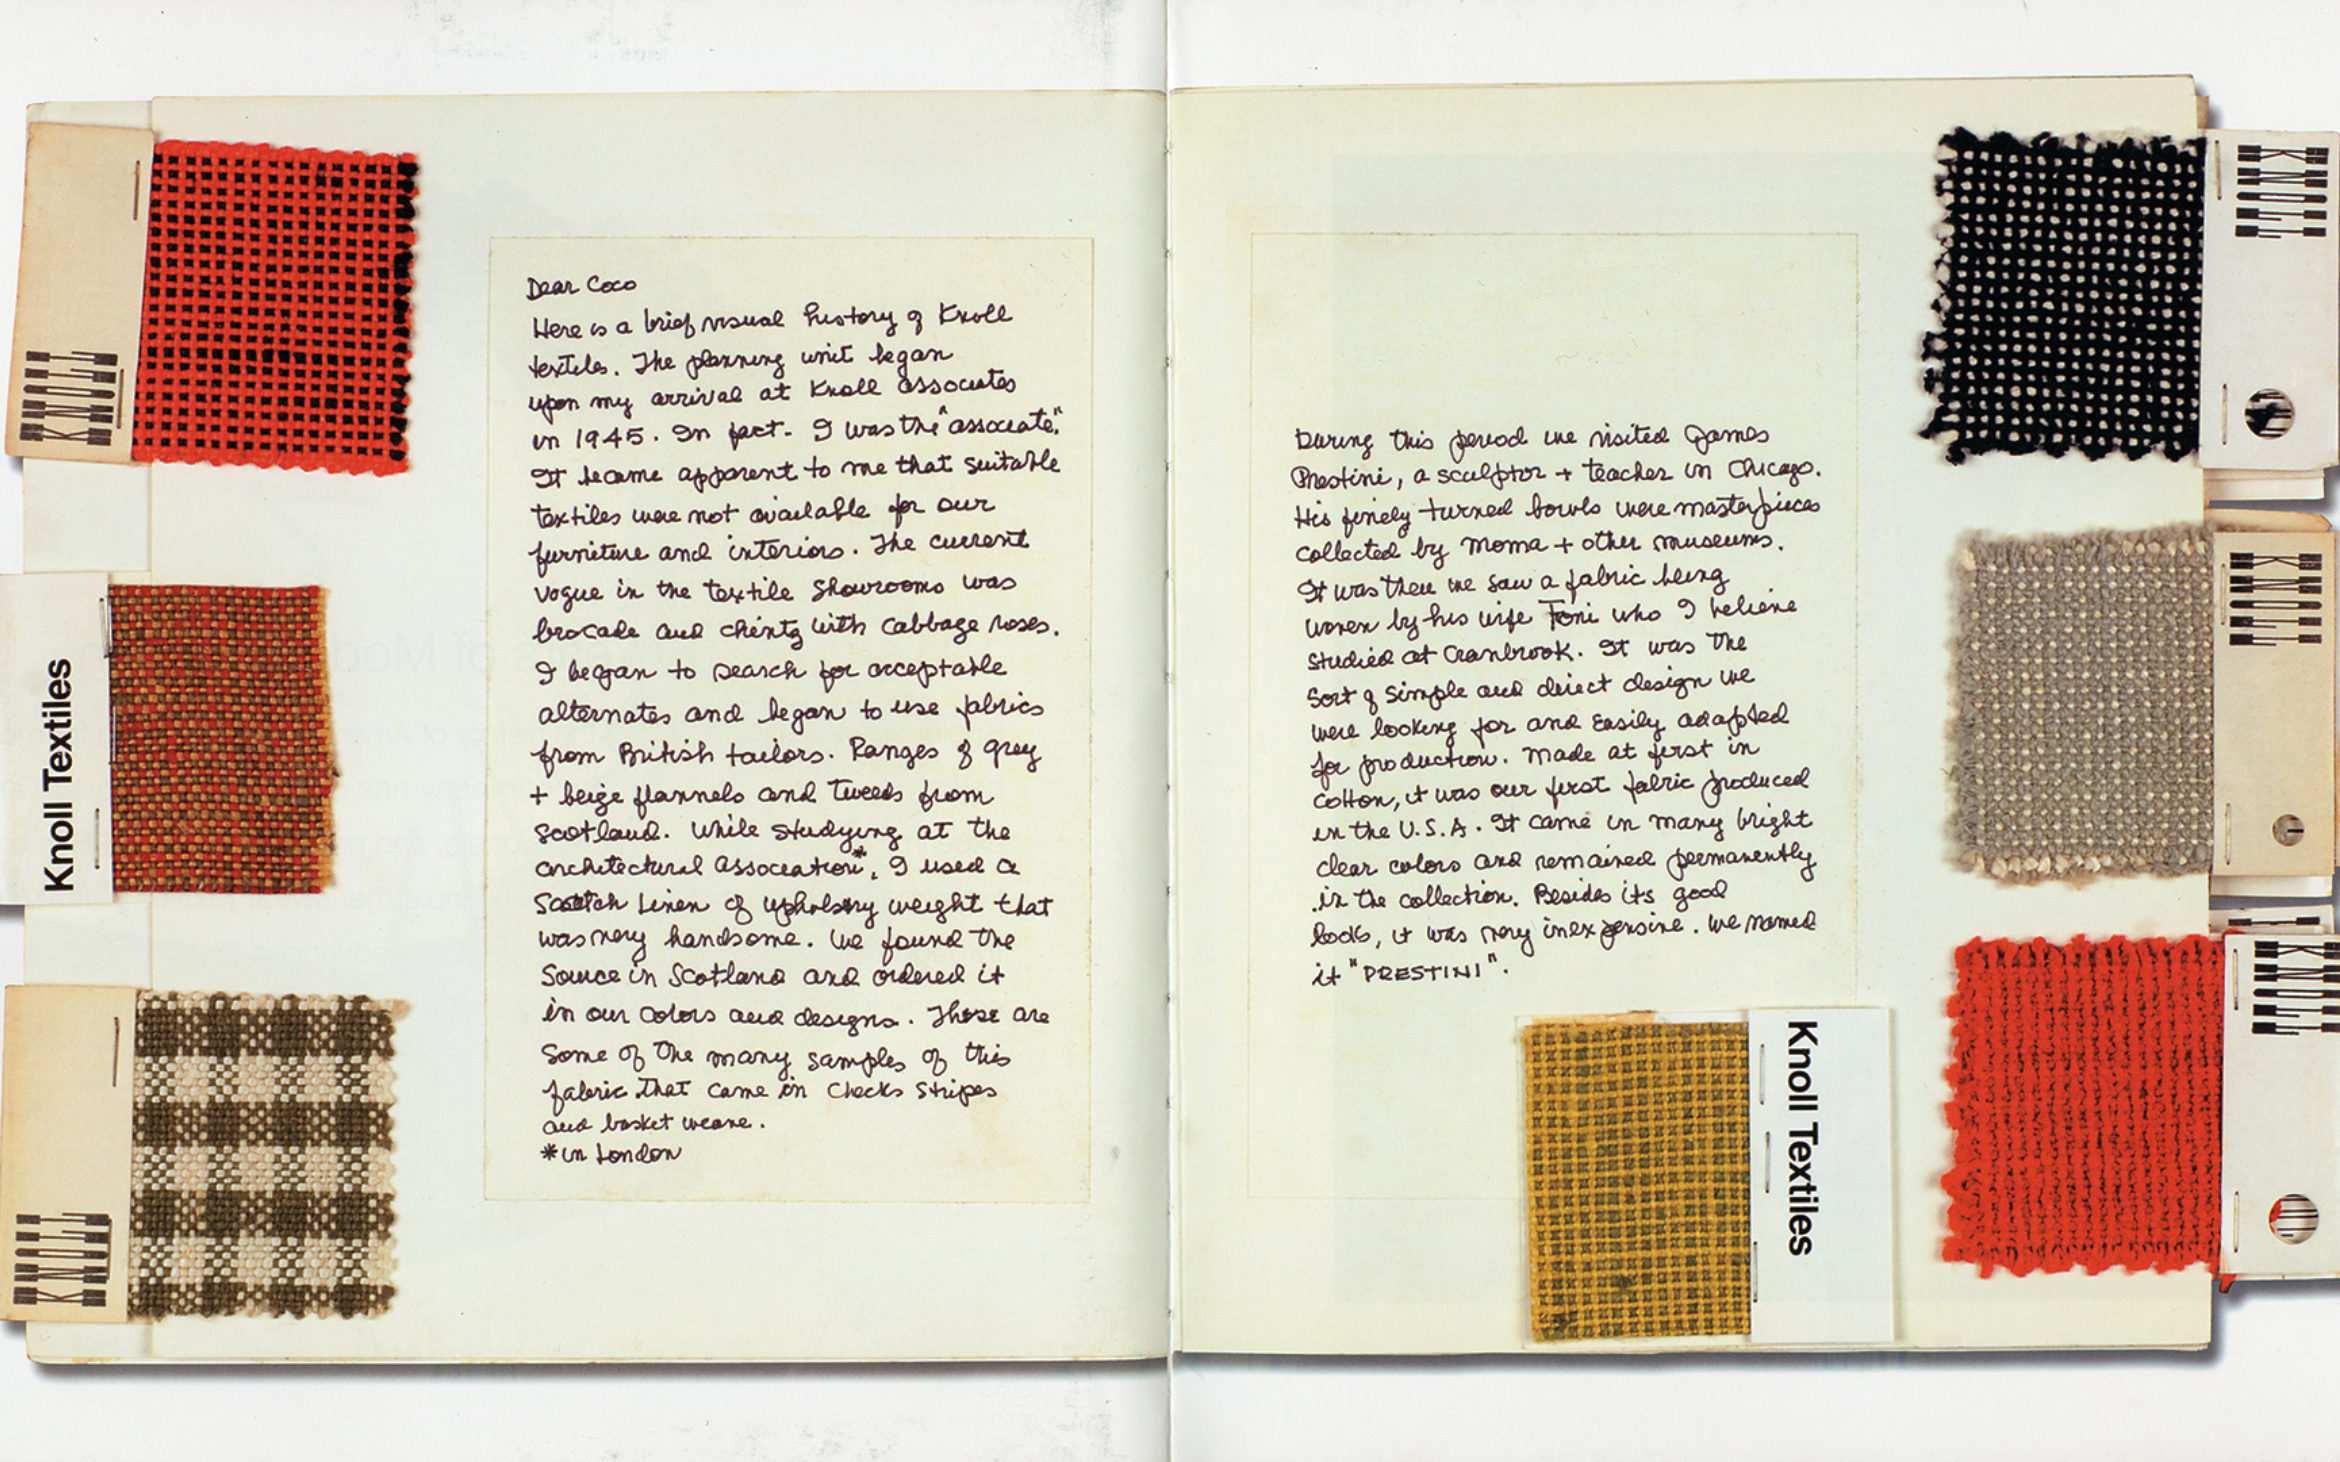 KNOLL
Knoll Textiles
KNOLL
Dear Coco
Here is a brief visual history of Knoll
textiles. The planning unit began
upon my arrival at Knoll associates
in 1945. In fact - I was the "associate."
It became apparent to me that suitable
textiles were not available for our
furniture and interiors. The current
vogue in the textile showrooms was
brocade and chintz with cabbage roses.
I began to search for acceptable
alternates and began to use fabrics
from British tailors. Ranges of grey
+ beige flannels and tweeds from
Scotland. While studying at the
architectural association*, I used a
Scotch Linen of upholstry weight that
was very handsome. We found the
Source in Scotland and ordered it
in our colors and designs. These are
Some of the many samples of this
fabric that came in checks stripes
and basket weave.
*in London
During this period we visited James
Prestini, a sculptor + teacher in Chicago.
His finely turned bowls were masterpieces
collected by Moma + other museums.
It was then we saw a fabric being
woven by his wife Toni who I believe
studied at Cranbrook. It was the
sort of simple and direct design we
were looking for and easily adapted
for production. Made at first in
cotton, it was our first fabric produced
in the U.S.A. It came in many bright
clear colors and remained permanently
in the collection. Besides its good
looks, it was very inexpensive. We named
it "PRESTINI".
KNOLL
KNOLL
KNOLL
Knoll Textiles